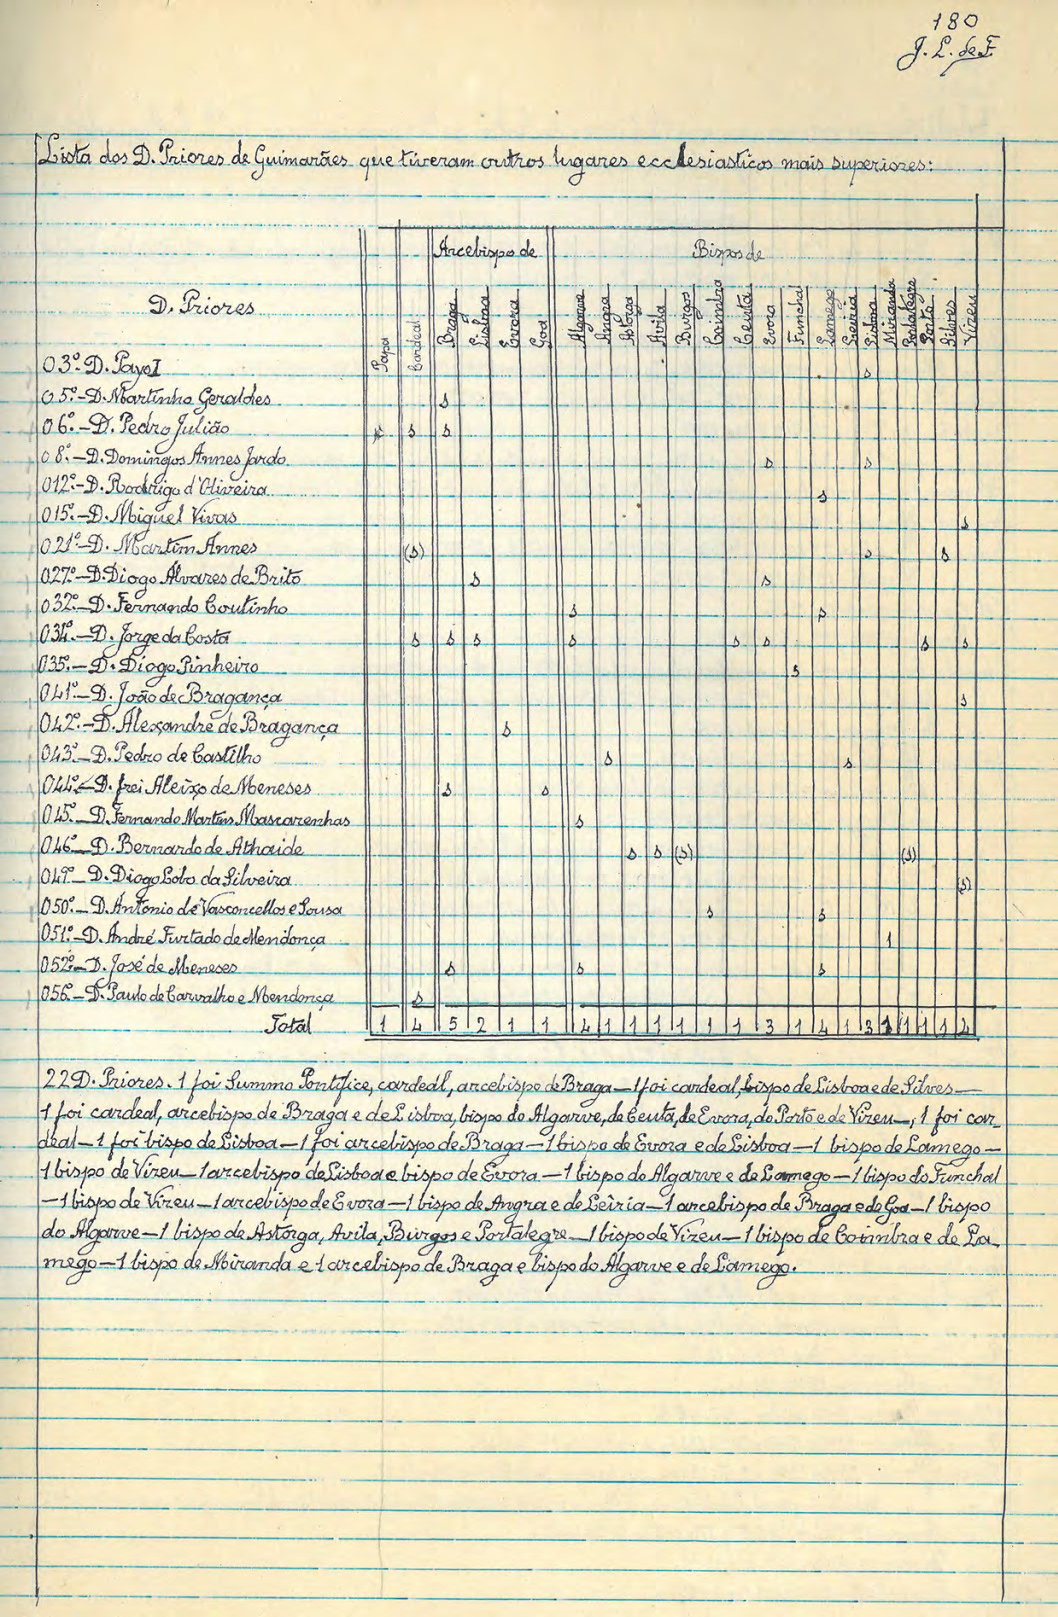 180
J. L. de F.
Lista dos D. Priores de Guimarães que tiveram outros lugares ecclesiasticos mais superiores:
D. Priores Papa Cardeal Arcebispo de Bispo de
Braga Lisboa Evora Goa Algarve Angra Astorga Avila Burgos Coimbra Ceuta Evora Funchal Lamego Leiria Lisboa Miranda Portalegre Porto Silves Vizeu
O 3º- D. Payo I s
O 5º- D. Martinho Geraldes s
O 6º- D. Pedro Julião s s s
O 8º- D. Domingos Annes Jardo s s
O 12º- D. Rodrigo d'Oliveira s
O 15º- D. Miguel Vivas s
O 21º- D. Martim Annes (s) s s
O 27º- D. Diogo Alvares de Brito s s
O 32º- D. Fernando Coutinho s s
O 34º- D. Jorge da Costa s s s s s s s s
O 35º- D. Diogo Pinheiro s
O 41º- D. João de Bragança s
O 42º- D. Alexandre de Bragança s
O 43º- D. Pedro de Castilho s s
O 44º- D. frei Aleixo de Meneses s s
O 45º- D. Fernando Martins Mascarenhas s
O 46º- D. Bernardo de Athaide s s (s) (s)
O 49º- D. Diogo Lobo da Silveira (s)
O 50º- D. Antonio de Vasconcellos e Sousa s s
O 51º- D. André Furtado de Mendonça 1
O 52º- D. José de Meneses s s s
O 56º- D. Paulo de Carvalho e Mendonça s
Total 1 4 5 2 1 1 4 1 1 1 1 1 1 3 1 4 1 3 1 1 1 1 4
22 D. Priores. 1 foi Summo Pontifice, cardeal, arcebispo de Braga — 1 foi cardeal, bispo de Lisboa e de Silves —
1 foi cardeal, arcebispo de Braga e de Lisboa, bispo do Algarve, de Ceuta, de Evora, do Porto e de Vizeu —, 1 foi car-
deal — 1 foi bispo de Lisboa — 1 foi arcebispo de Braga — 1 bispo de Evora e de Lisboa — 1 bispo de Lamego —
1 bispo de Vizeu — 1 arcebispo de Lisboa e bispo de Evora — 1 bispo do Algarve e de Lamego — 1 bispo do Funchal
— 1 bispo de Vizeu — 1 arcebispo de Evora — 1 bispo de Angra e de Leiria — 1 arcebispo de Braga e de Goa — 1 bispo
do Algarve — 1 bispo de Astorga, Avila, Burgos e Portalegre — 1 bispo de Vizeu — 1 bispo de Coimbra e de La-
mego — 1 bispo de Miranda e 1 arcebispo de Braga e bispo do Algarve e de Lamego.